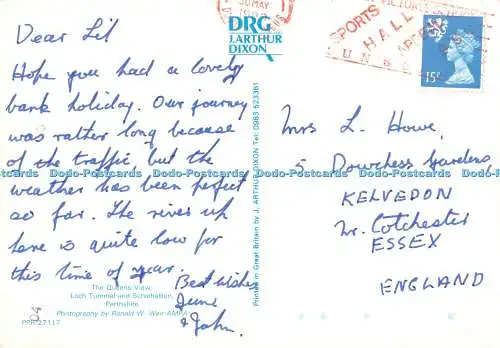 Dear Lil
Hope you had a lovely
bank holiday. Our journey
was rather long because
of the traffic, but the
weather has been perfect
so far. The river up
here is quite low for
this time of year.
Best wishes
June
& John.
The Queens View,
Loch Tummel and Schiehallion,
Perthshire
Photography by Ronald W. Weir-AMPA
PPR/27117
04
DRG
J.ARTHUR
DIXON
Printed in Great Britain by J. ARTHUR DIXON Tel: 0983 523381
30 MAY
SPORTS
HALL
15P
Mrs L. Howe,
5 Dowches Gardens
KELVEDON
Nr. Colchester
ESSEX
ENGLAND
Dodo-Postcards Dodo-Postcards Dodo-Postcards Dodo-Postcards Dodo-Postcards